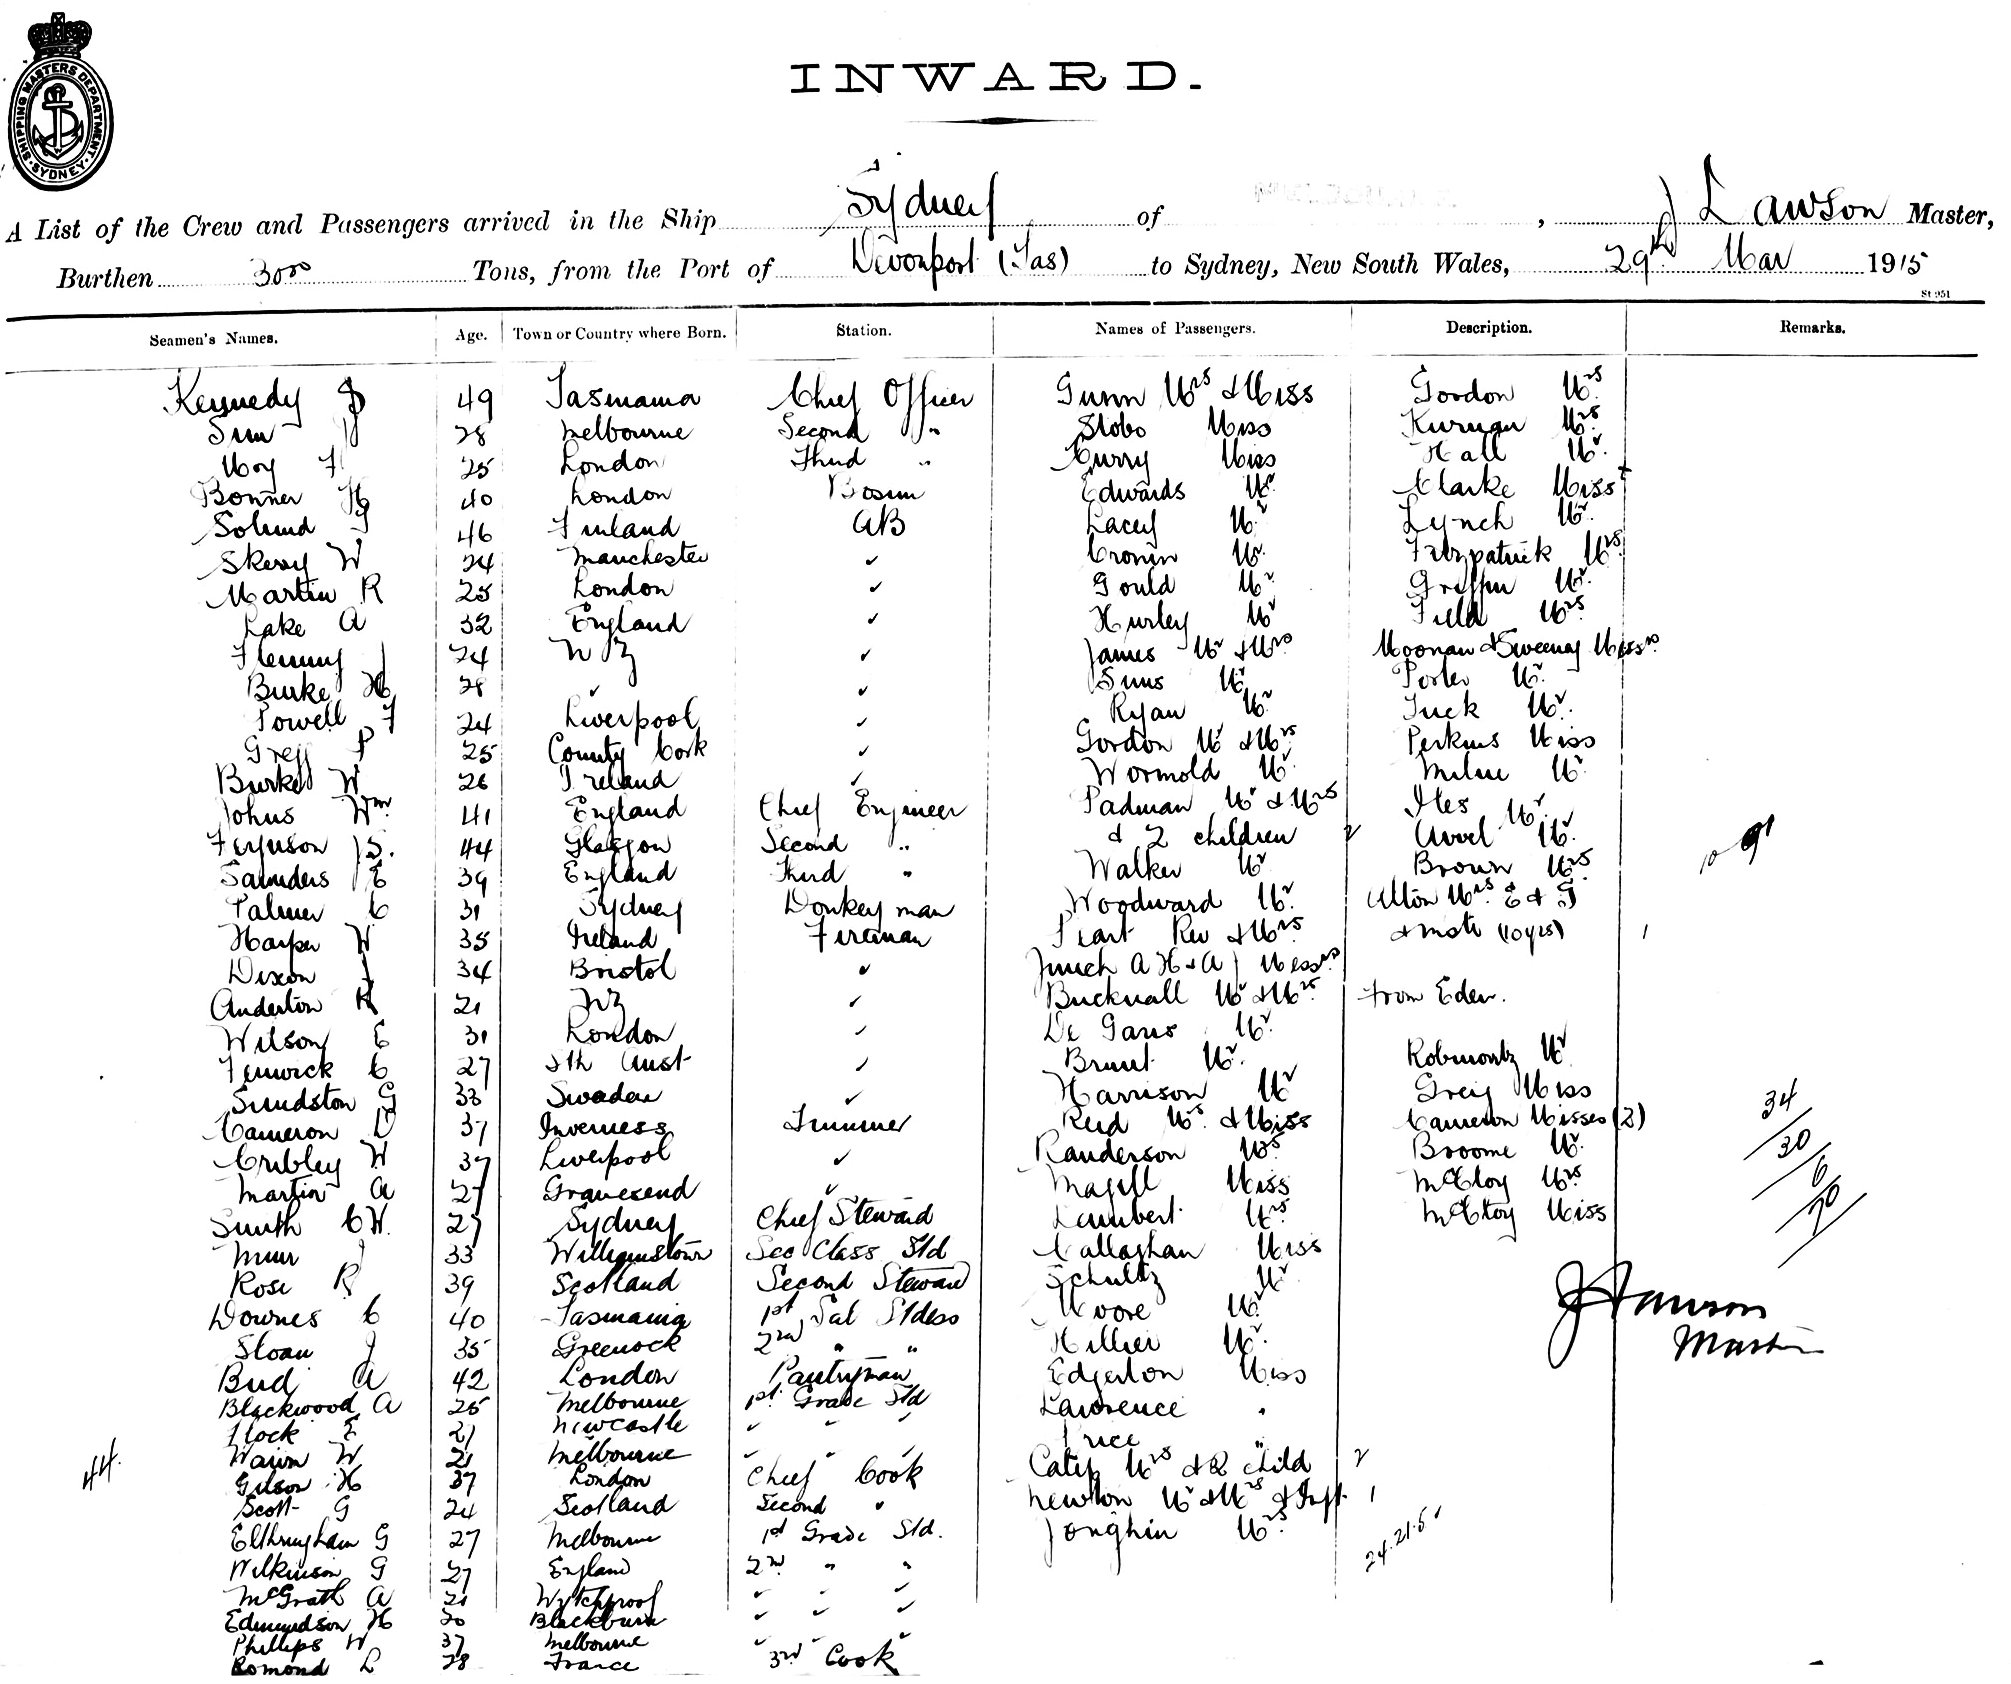 SHIPPING MASTERS DEPARTMENT
SYDNEY
INWARD.
A List of the Crew and Passengers arrived in the Ship Sydney of , J Lawson Master,
Burthen 3000 Tons, from the Port of Devonport (Tas) to Sydney, New South Wales, 29th Mar 1915
St 951
Seamen's Names. Age. Town or Country where Born. Station. Names of Passengers. Description. Remarks.
Kennedy J 49 Tasmania Chief Officer Gunn Mrs & Miss Gordon Mrs
Sim 28 Melbourne Second " Stobo Miss Mrs
Moy F 25 London Third " Curry Miss Hall Mr
Bonner H 40 London Bosun Edwards Mr Clarke Miss
46 Finland AB Lacey Mr Lynch Mr
Skerry W 24 Manchester ✓ Cronin Mr Fitzpatrick Mrs
Martin R 25 London ✓ Gould Mr Griffin Mr
Lake A 32 England ✓ Hurley Mr Field Mrs
Fleming J 24 NZ ✓ James Mr & Mrs Moonan & Sweeney Misses
Burke H 28 ✓ ✓ Sims Mr Porter Mr
Powell F 24 Liverpool ✓ Ryan Mr Tuck Mr
Gregg P 25 County Cork ✓ Gordon Mr & Mrs Perkins Miss
Burke W 26 Ireland ✓ Wormold Mr Milne Mr
Johns Wm 41 England Chief Engineer Padman Mr & Mrs Iles Mr
Ferguson J S. 44 Glasgow Second " & 2 children 2 Mr
Saunders E 39 England Third " Walker Mr Brown Mrs
Palmer C 31 Sydney Donkeyman Woodward Mr Mrs E & G
Harper W 35 Ireland Fireman Peart Rev & Mrs & mstr (10 yrs) 1
Dixon J 34 Bristol ✓ A H & A J Misses
Anderton R 21 NZ ✓ Bucknall Mr & Mrs From Eden.
Wilson E 31 London ✓ De Garis Mr
Fenwick C 27 Sth Aust ✓ Brunt Mr Mr
Sundston G 33 Sweden ✓ Harrison Mr Greig Miss
Cameron D 37 Inverness Trimmer Reid Mrs & Miss Cameron Misses (2) 34
Cribley W 37 Liverpool ✓ Randerson Mrs Broome Mr 30
Martin A 27 Gravesend ✓ Magill Miss McCloy Mrs 6
Smith C W. 27 Sydney Chief Steward Lambert Mrs McCloy Miss 70
Muir J 33 Williamstown Sec Class Std Callaghan Miss
Rose R 39 Scotland Second Steward Schultz Mr
Downes C 40 Tasmania 1st Sal Stdess Moore Mr J Lawson
Sloan J 35 Greenock 2nd " " Hillier Mr Master
Bird A 42 London Pantryman Edgerton Miss
Blackwood A 25 Melbourne 1st Grade Std Lawrence "
Flock E 21 Newcastle ✓ ✓ ✓ Price "
Warin W 21 Melbourne ✓ ✓ ✓ Mrs & 2 child 2
44. Gilson H 37 London Chief Cook Newton Mr & Mrs & Inft. 1
Scott G 24 Scotland Second " Jonghin Mrs
Elthringham G 27 Melbourne 1st Grade Std. 24.21.5
Wilkinson G 27 England 2nd " "
McGrath A 21 Wytchproof ✓ ✓ ✓
Edmundson H 20 Blackburn ✓ ✓ ✓
Phillips W 37 Melbourne ✓ ✓ ✓
Romond L 28 France 3rd Cook